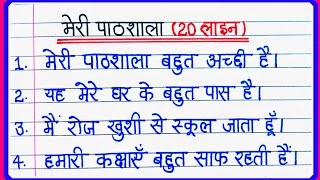 मेरी पाठशाला (20 लाइन)
1. मेरी पाठशाला बहुत अच्छी है।
2. यह मेरे घर के बहुत पास है।
3. मैं रोज खुशी से स्कूल जाता हूँ।
4. हमारी कक्षाएँ बहुत साफ रहती हैं।